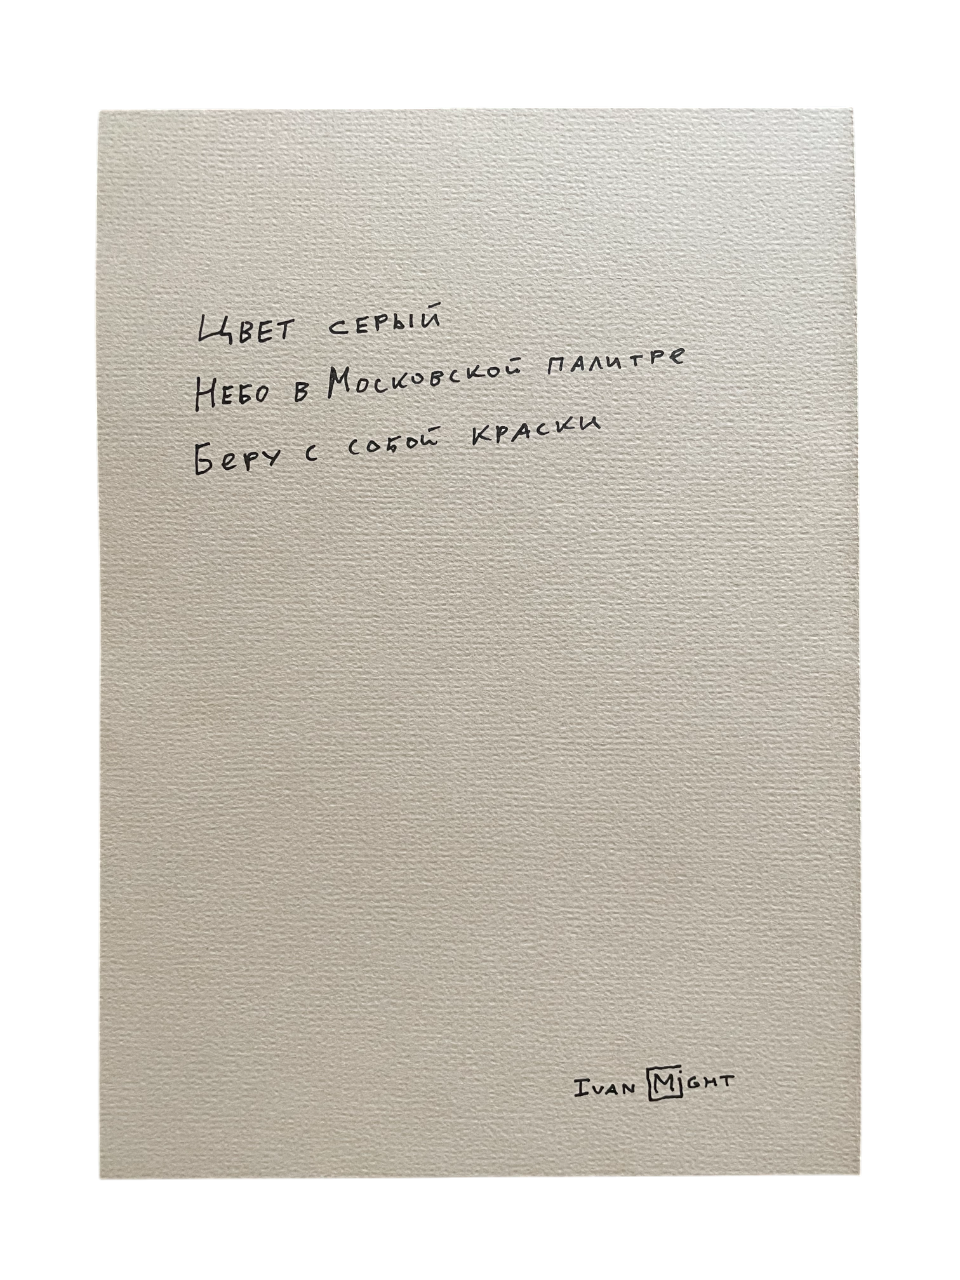 Цвет серый
Небо в Московской палитре
Беру с собой краски
Ivan Might